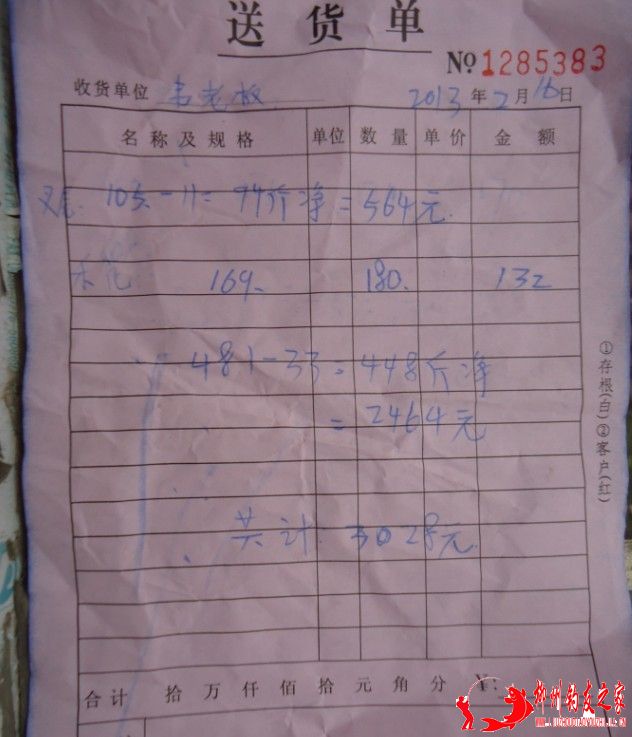 送货单
№ 1285383
收货单位 韦老板 2013 年 2 月 16 日
名称及规格 单位 数量 单价 金额
105 - 11 = 94斤净 = 564元
169 180 132
481 - 33 = 448斤净
= 2464元
共计: 3028元
合计 拾 万 仟 佰 拾 元 角 分 ¥:
①存根(白)②客户(红)
柳州钓友之家